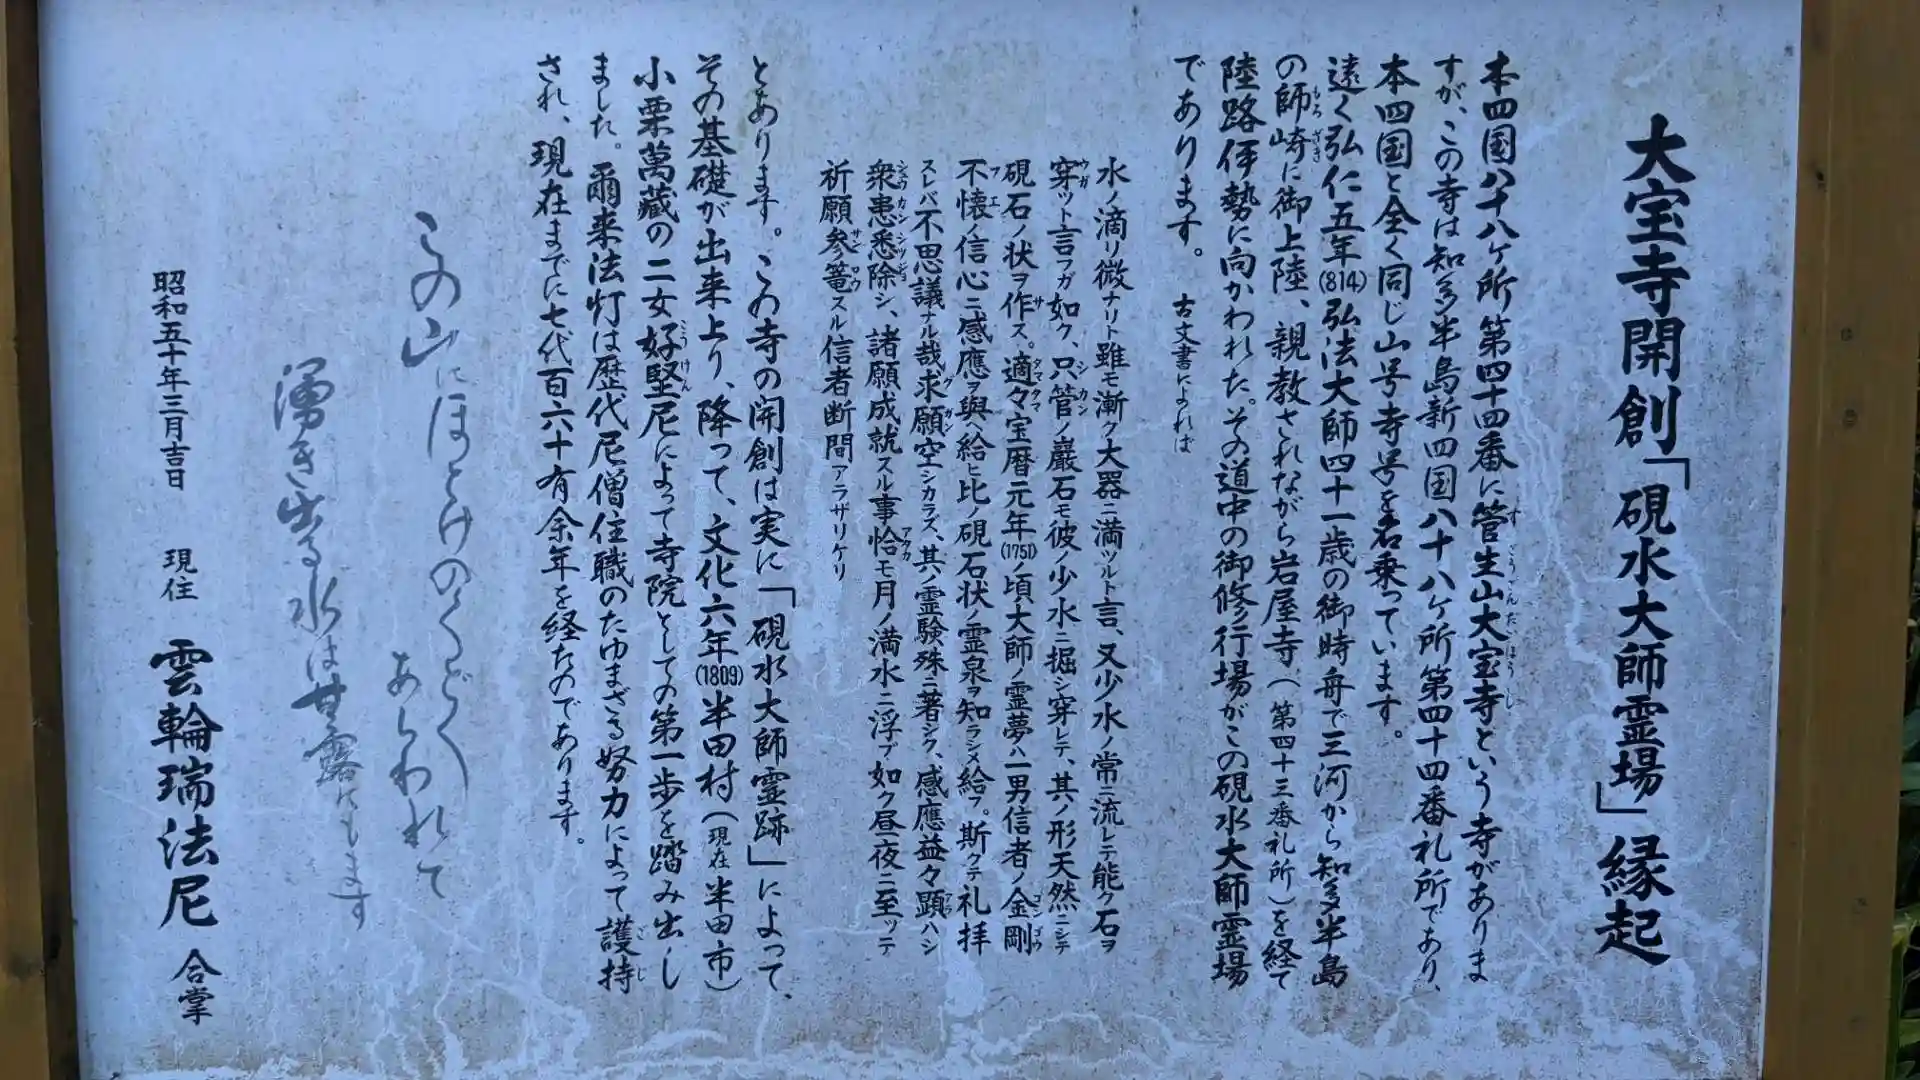 大宝寺開創「硯水大師霊場」縁起
本四国八十八ヶ所第四十四番に管生山大宝寺という寺がありま
すが、この寺は知多半島新四国八十八ヶ所第四十四番礼所であり、
本四国と全く同じ山号寺号を名乗っています。
遠く弘仁五年(814)弘法大師四十一歳の御時舟で三河から知多半島
の師崎に御上陸、親教されながら岩屋寺(第四十三番礼所)を経て
陸路伊勢に向かわれた。その道中の御修行場がこの硯水大師霊場
であります。 古文書によれば
水ノ滴リ微ナリト雖モ漸ク大器ニ満ツルト言、又少水ノ常ニ流レテ能ク石ヲ
穿ツト言フガ如ク、只管ノ巖石モ彼ノ少水ニ掘シ穿レテ、其ノ形天然ニシテ
硯石ノ状ヲ作ス。適々宝暦元年(1751)ノ頃大師ノ霊夢ハ一男信者ノ金剛
不懐ノ信心ニ感應ヲ與ヘ給ヒ比ノ硯石状ノ霊泉ヲ知ラシメ給フ。斯クテ礼拝
スレバ不思議ナル哉求願空シカラズ、其ノ霊験殊ニ著シク、感應益々顕ハシ
衆患悉除シ、諸願成就スル事恰モ月ノ満水ニ浮ブ如ク昼夜ニ至ッテ
祈願参篭スル信者断間アラザリケリ
とあります。この寺の開創は実に「硯水大師霊跡」によって、
その基礎が出来上り、降って、文化六年(1809)半田村(現在半田市)
小栗萬藏の二女好堅尼によって寺院としての第一歩を踏み出し
ました。爾来法灯は歴代尼僧住職のたゆまざる努力によって護持
され、現在までに七代百六十有余年を経たのであります。
この山にほとけのくどく
あらわれて
湧き出る水は甘露にもます
昭和五十年三月吉日 現住 雲輪瑞法尼 合掌